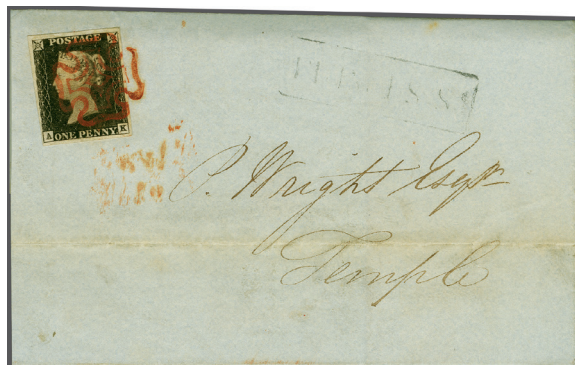 POSTAGE
A ONE PENNY K
P. Wright Esqr
Temple